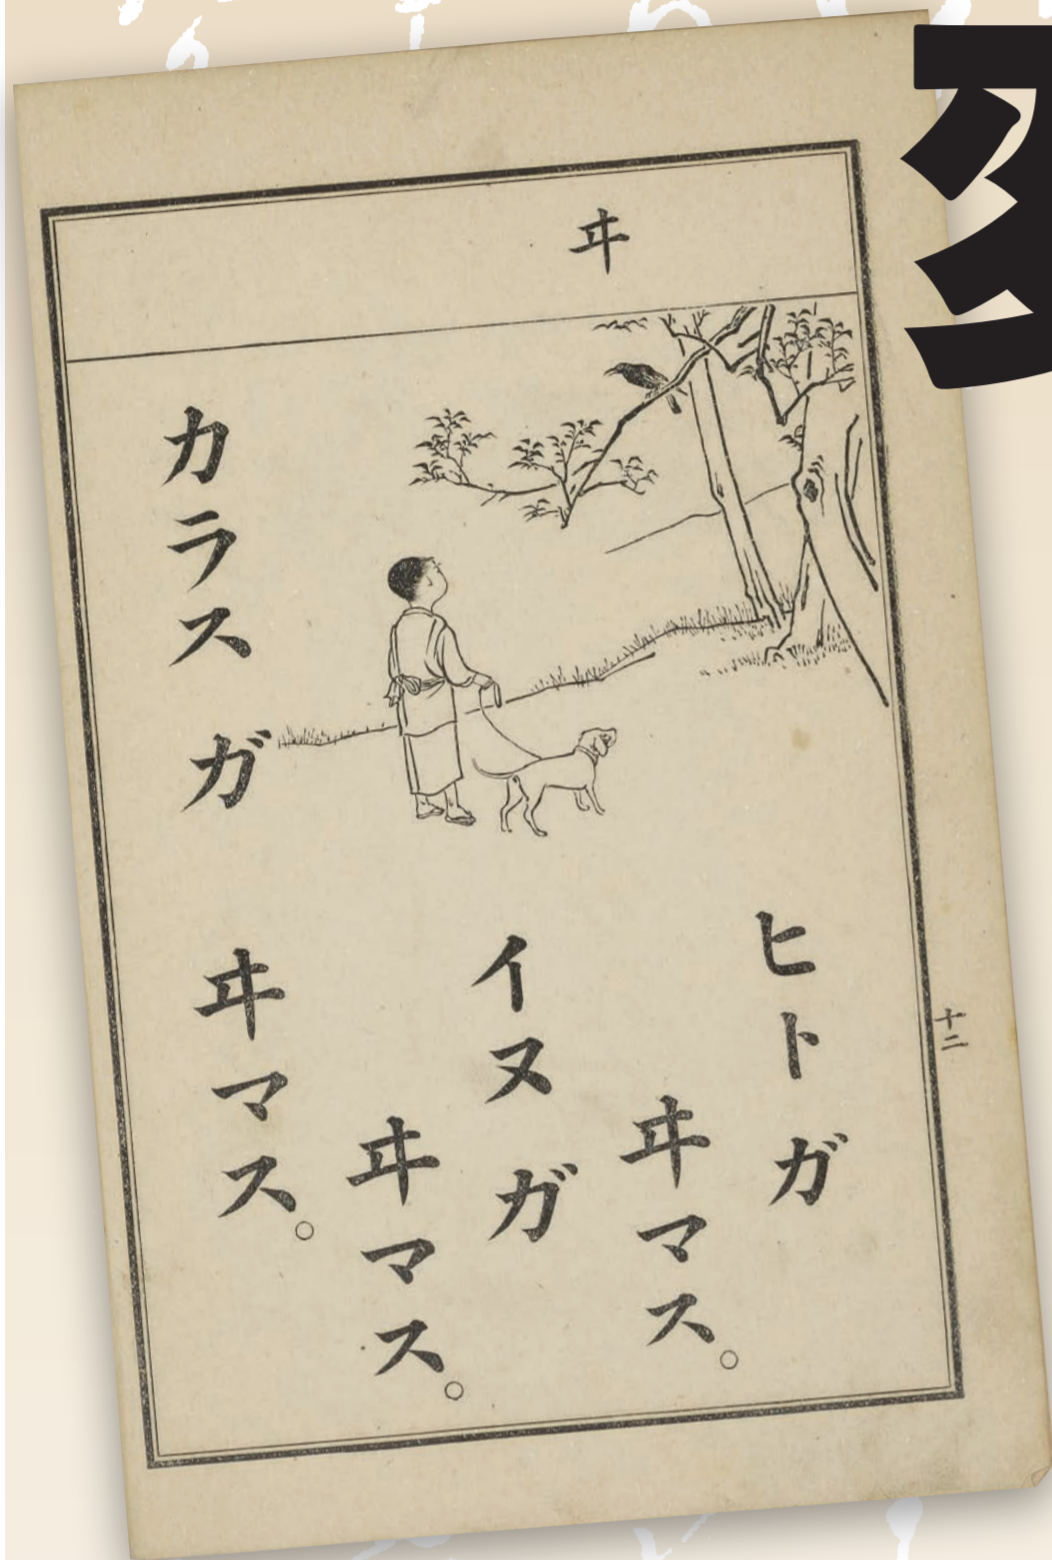 ヰ
ヒト ガ
ヰマス。
イヌ ガ
ヰマス。
カラス ガ
ヰマス。
十二